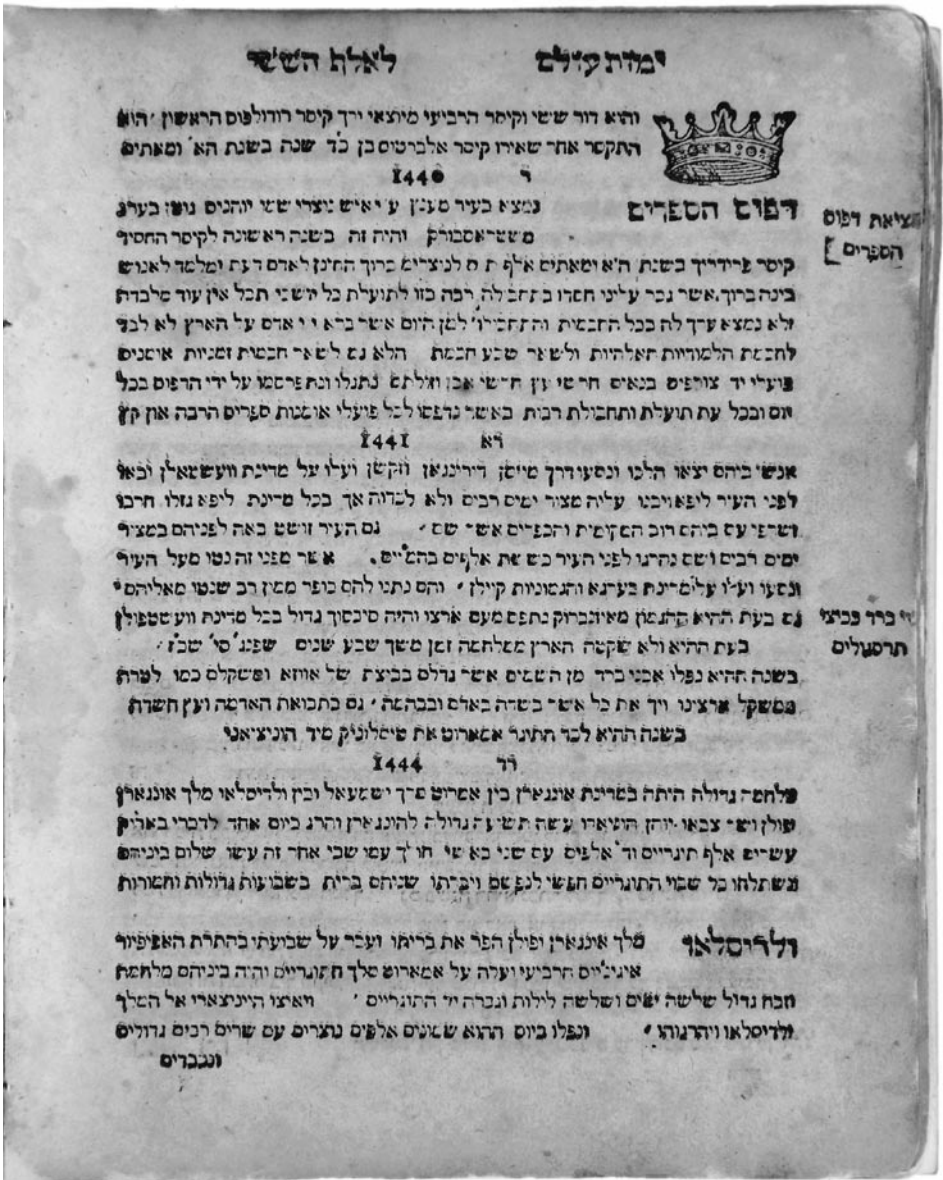 ימות עולם לאלף הששי
והוא דור ששי וקיסר הרביעי מיוצאי ירך קיסר רודולפוס הראשון הוא
התקסר אחר שאירו קיסר אלברטוס בן כד שנה בשנת הא' ומאתים
ר 1440
דפוס הספרים נמצא בעיר מענץ ע״י איש נוצרי ששמו יוהנים
משטראסבורק והיה זה בשנה ראשונה לקיסר החסיד
מציאת דפוס
הספרים
קיסר פרידריך בשנת ה״א ומאתים אלף ת״ת לנוצרים ברוך החונן לאדם דעת ומלמד לאנוש
בינה ברוך אשר גבר עלינו חסדו בתחבולה רבה כזו לתועלת כל יושבי תבל אין עוד מלבדה
ולא נמצא ערך לה בכל החכמות והתחבולו' למן היום אשר ברא י״י אדם על הארץ לא לבד
לחכמת הלמודיות האלהיות ולשאר שבע חכמות הלא גם לשאר חכמות זמניות אומנים
פועלי יד צורפים בנאים חרשי עץ חרשי אבן וזולתם נתגלו ונתפרסמו על ידי הדפוס בכל
יום ובכל עת תועלת ותחבולת רבות באשר נדפסו לכל פועלי אומנות ספרים הרבה אין קץ
רא 1441
אנשי ביהם יצאו הלכו ונסעו דרך מייסן דירינגאן וזקסן ועלו על מדינת וועשטפאלן ובאו
לפני העיר ליפא ויבנו עליה מצור ימים רבים ולא לכדוה אך בכל מדינת ליפא גזלו חרבו
ושרפו עם ביהם רוב המקומות והכפרים אשר שם גם העיר זושט באה לפניהם במצור
ימים רבים ושם נהרגו לפני העיר כששת אלפים בהמיים. אשר מפני זה נטו מעל העיר
ונסעו ועלו על מדינת בערגא והגמוניות קיילן והם נתנו להם כופר ממון רב שנטו מאליהם
גם בעת ההיא ההגמון נתפס מעם ארצו והיה סכסוך גדול בכל מדינת וועשטפולן
בעת ההיא ולא שקטה הארץ ממלחמה זמן משך שבע שנים שפנג' סי' שכ״ז
ברד כביצי
תרנגולים
בשנה ההיא נפלו אבני ברד מן השמים אשר גדלם כביצת של אווזא ומשקלם כמו ליטרה
ממשקל ארצינו ויך את כל אשר בשדה באדם ובבהמה גם בתבואת האדמה ועץ השדה
בשנה ההיא לכד התוגר אמארוט את שאלוניק מיד הוניציאני
רד 1444
מלחמה גדולה היתה במדינת אונגארן בין אמרוט מלך ישמעאל ובין ולדיסלאו מלך אונגארן
פולן ושר צבאו יוהן הונייאדו עשה תשועה גדולה להונגארן והרג ביום אחד לדברי באליק
עשרים אלף תוגריים וד' אלפים עם שני ראשי הוליך עמו שבי אחר זה עשו שלום ביניהם
ונשתלחו כל שבוי התוגריים חפשי לנפשם ויכרתו שניהם ברית בשבועות גדולות וחמורות
ולדיסלאו מלך אונגארן ופולן הפר את בריתו ועבר על שבועתו בהתרת האפיפיור
איגיניוס הרביעי ועלה על אמארוט מלך התוגריים והיה ביניהם מלחמה
וטבח גדול שלשה ימים ושלשה לילות וגברה יד התוגריים ויאיצו הייניצארי אל המלך
ולדיסלאו ויהרגוהו ונפלו ביום ההוא שמונים אלפים נוצרים עם שרים רבים גדולים
ונכבדים